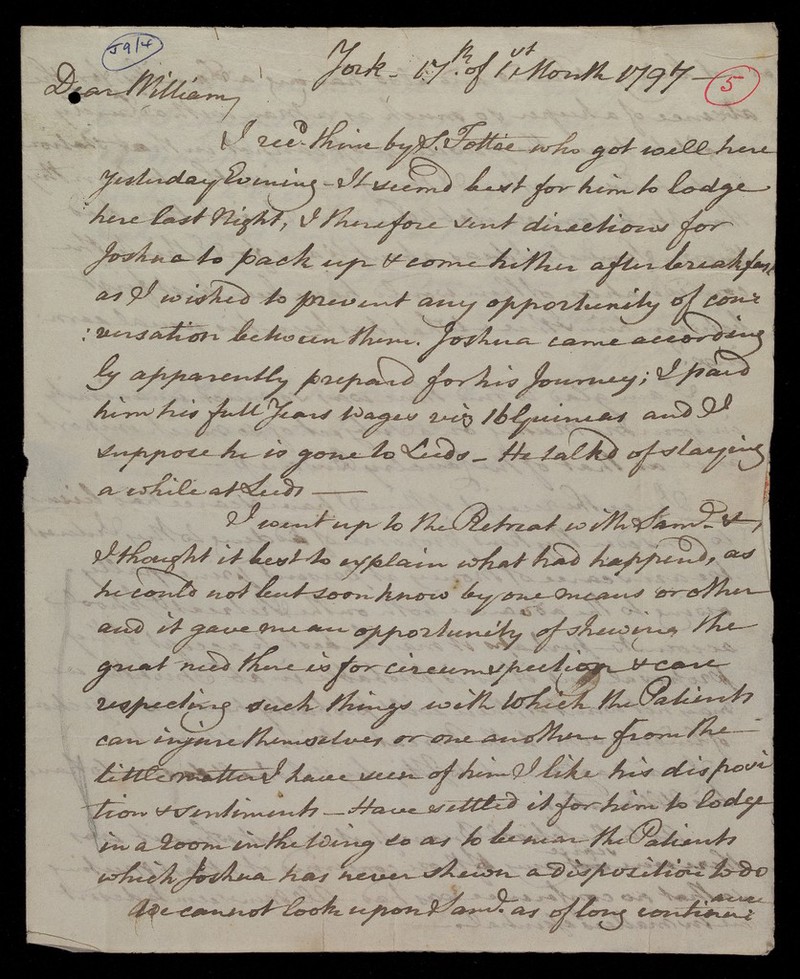 J9/4
York - 17th. of 1st Month 1797 -
5
Dear William,
I recd. thine by S. Tottie who got well here
yesterday Evening - It seemd best for him to lodge
here last Night, I therefore sent directions for
Joshua to pack up & come hither after breakfast
as I wished to prevent any opportunity of con=
:versation between them. Joshua came according
ly apparently prepard for his Journey; I paid
him his full Years Wages viz 16 Guineas and I
suppose he is gone to Leeds - He talkd of staying
a while at Leeds -
I went up to the Retreat with Saml. &
I thought it best to explain what had happend, as
he could not but soon know by one means or other
and it gave me an opportunity of shewing the
great need there is for circumspection & care
respecting such things with which the Patients
can injure themselves or one another from the
little matter I have seen of him I like his disposi
tion & sentiments - Have settled it for him to lodge
in a room in the Wing so as to be near the Patients
which Joshua has never shewn a disposition to do
We cannot look upon Saml. as of long continuance